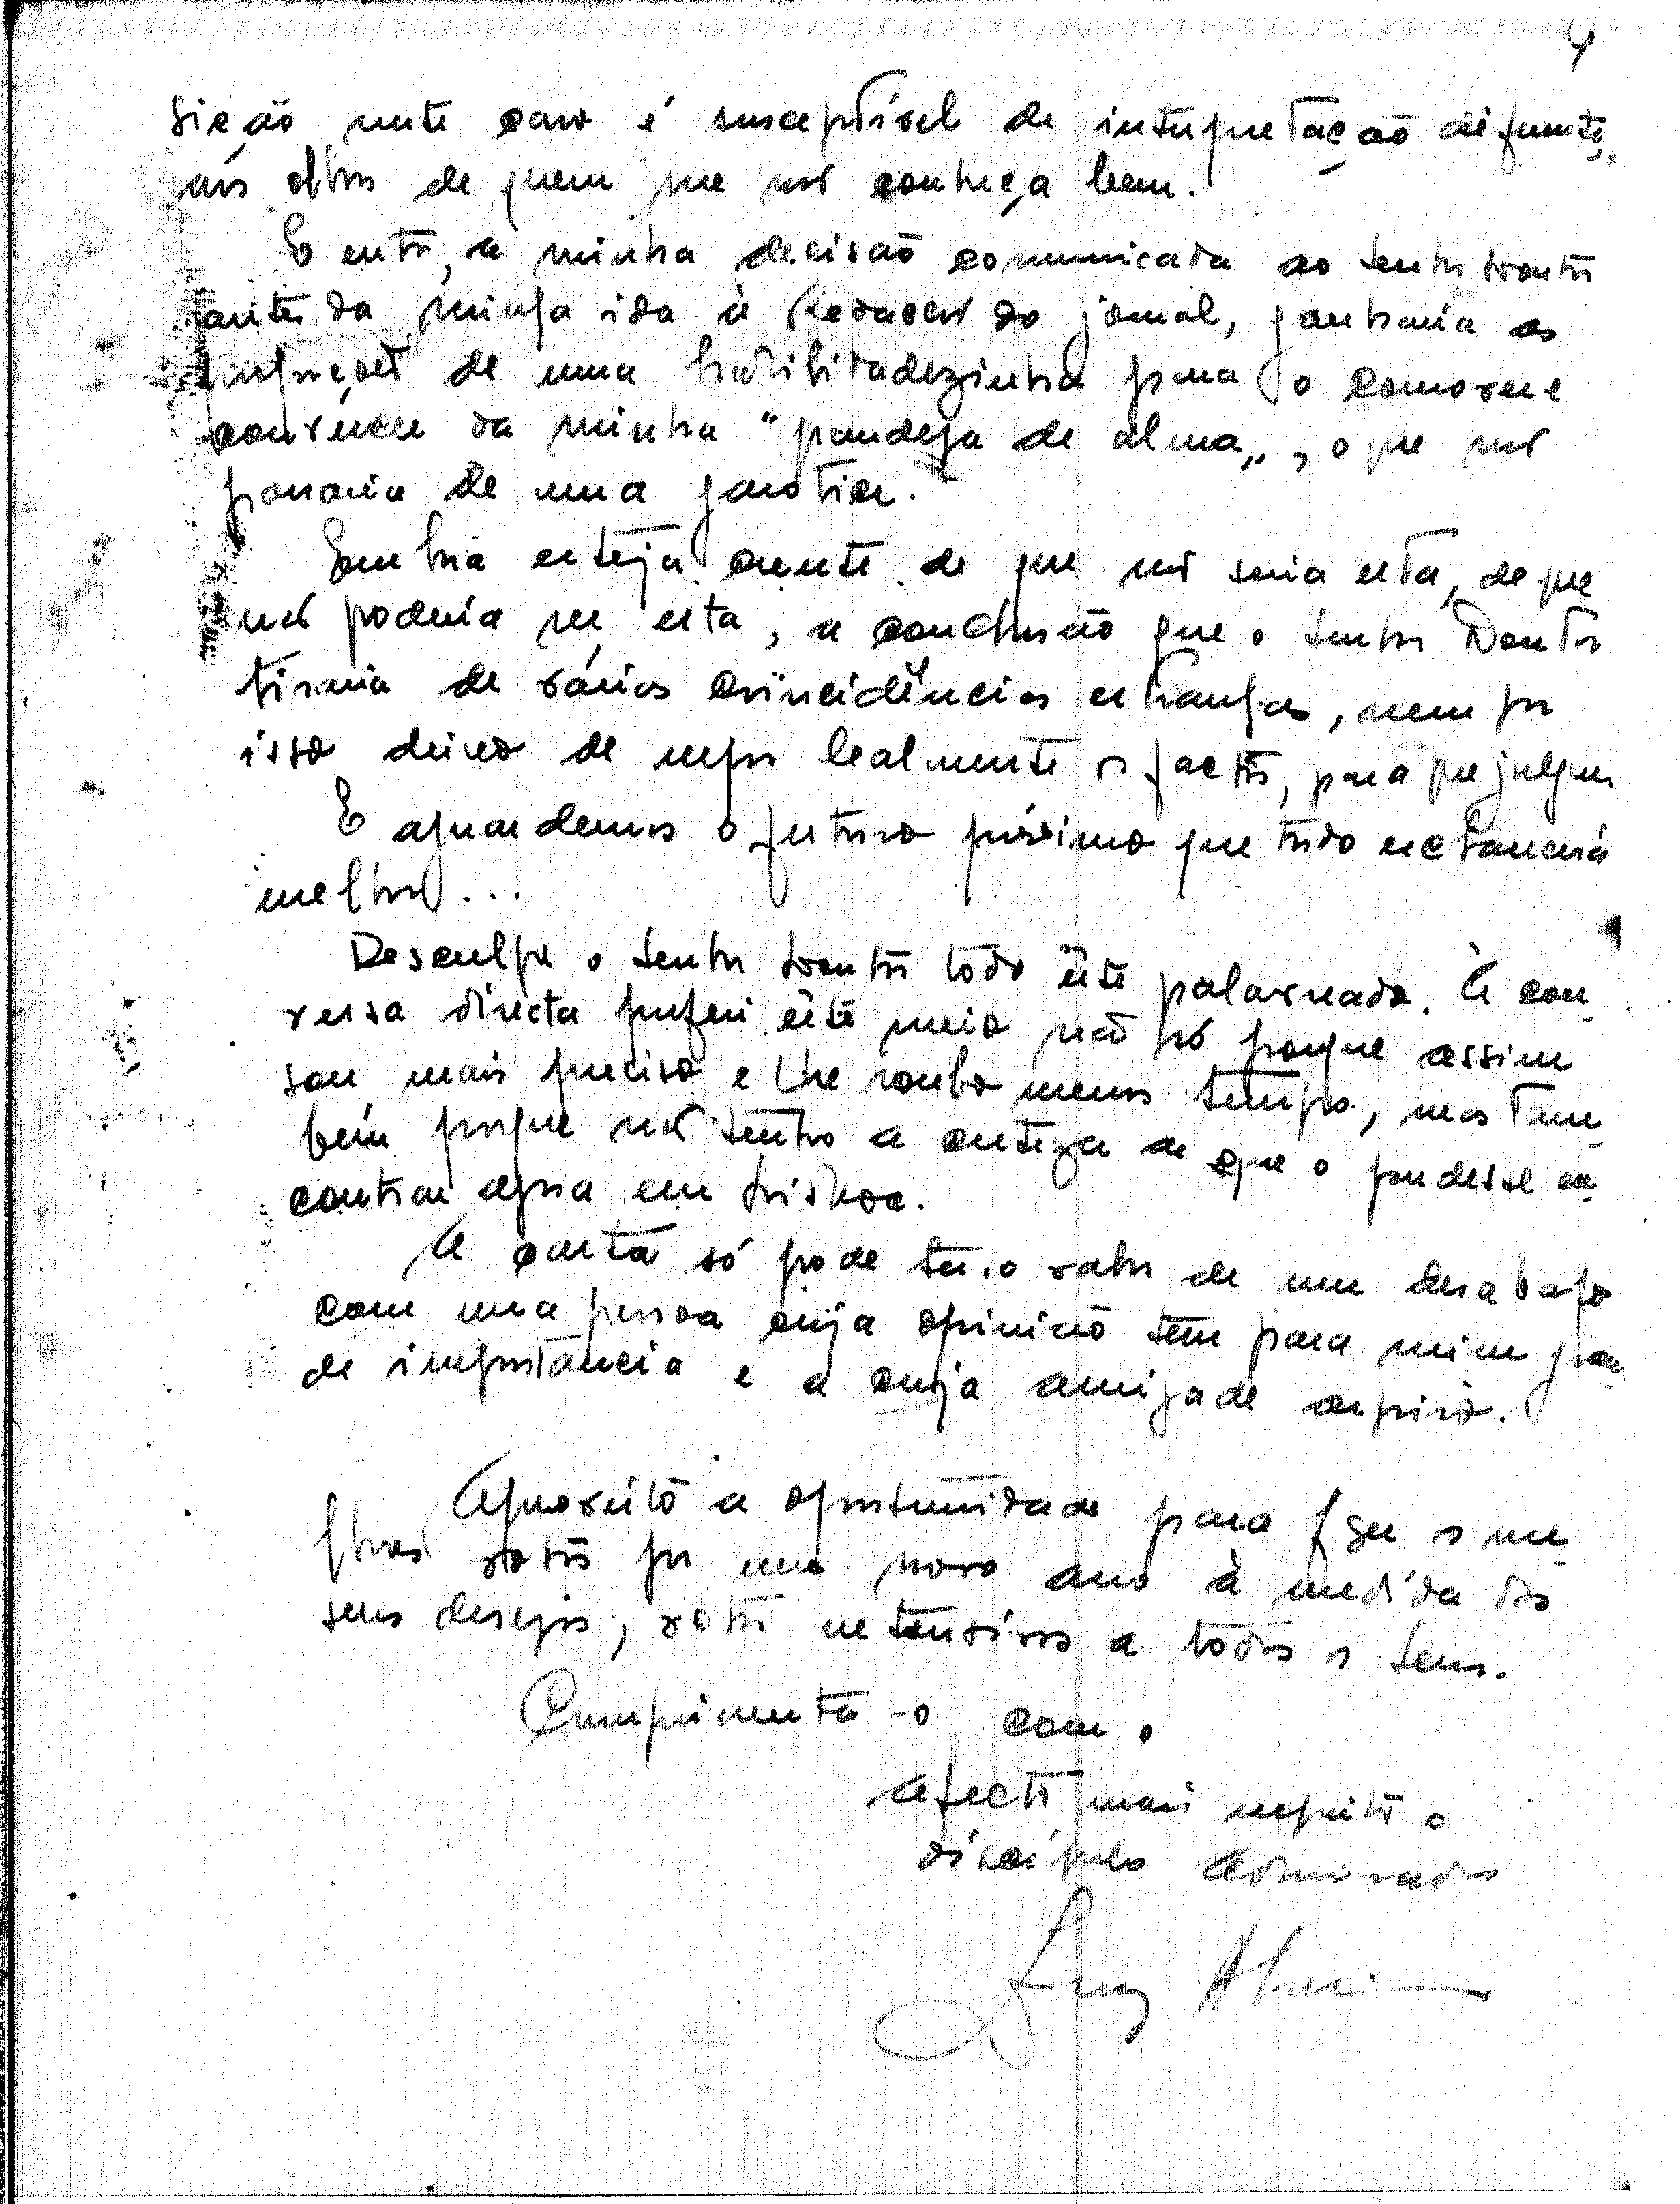 4
sição neste caso é susceptível de interpretação diferente,
aos olhos de quem me não conheça bem.
E então, a minha decisão comunicada ao Senhor Doutor
antes da minha ida à Redacção do jornal, ganharia as
proporções de uma habilidadezinha para o
convencer da minha "grandeza de alma„, o que não
passaria de uma garotice.
Embora esteja ciente de que não seria esta, de que
não poderia ser esta, a conclusão que o Senhor Doutor
tiraria de várias coincidências estranhas, nem por
isso deixo de repor lealmente os factos, para que julgue.
E aguardemos o futuro próximo que tudo esclarecerá
melhor...
Desculpe o Senhor Doutor todo êste palavreado. À con-
versa directa preferi êste meio não só porque assim
sou mais preciso e lhe roubo menos tempo, mas tam-
bém porque não tenho a certeza de que o pudesse en-
contrar agora em Lisboa.
A carta só pode ter o valor de um desabafo
com uma pessoa cuja opinião tem para mim gran-
de importância e a cuja amizade aspiro.
Aproveito a oportunidade para fazer os me-
lhores votos por um novo ano à medida dos
seus desejos, votos extensivos a todos os seus.
Cumprimenta-o com o
afecto mais respeito o
discípulo admirador